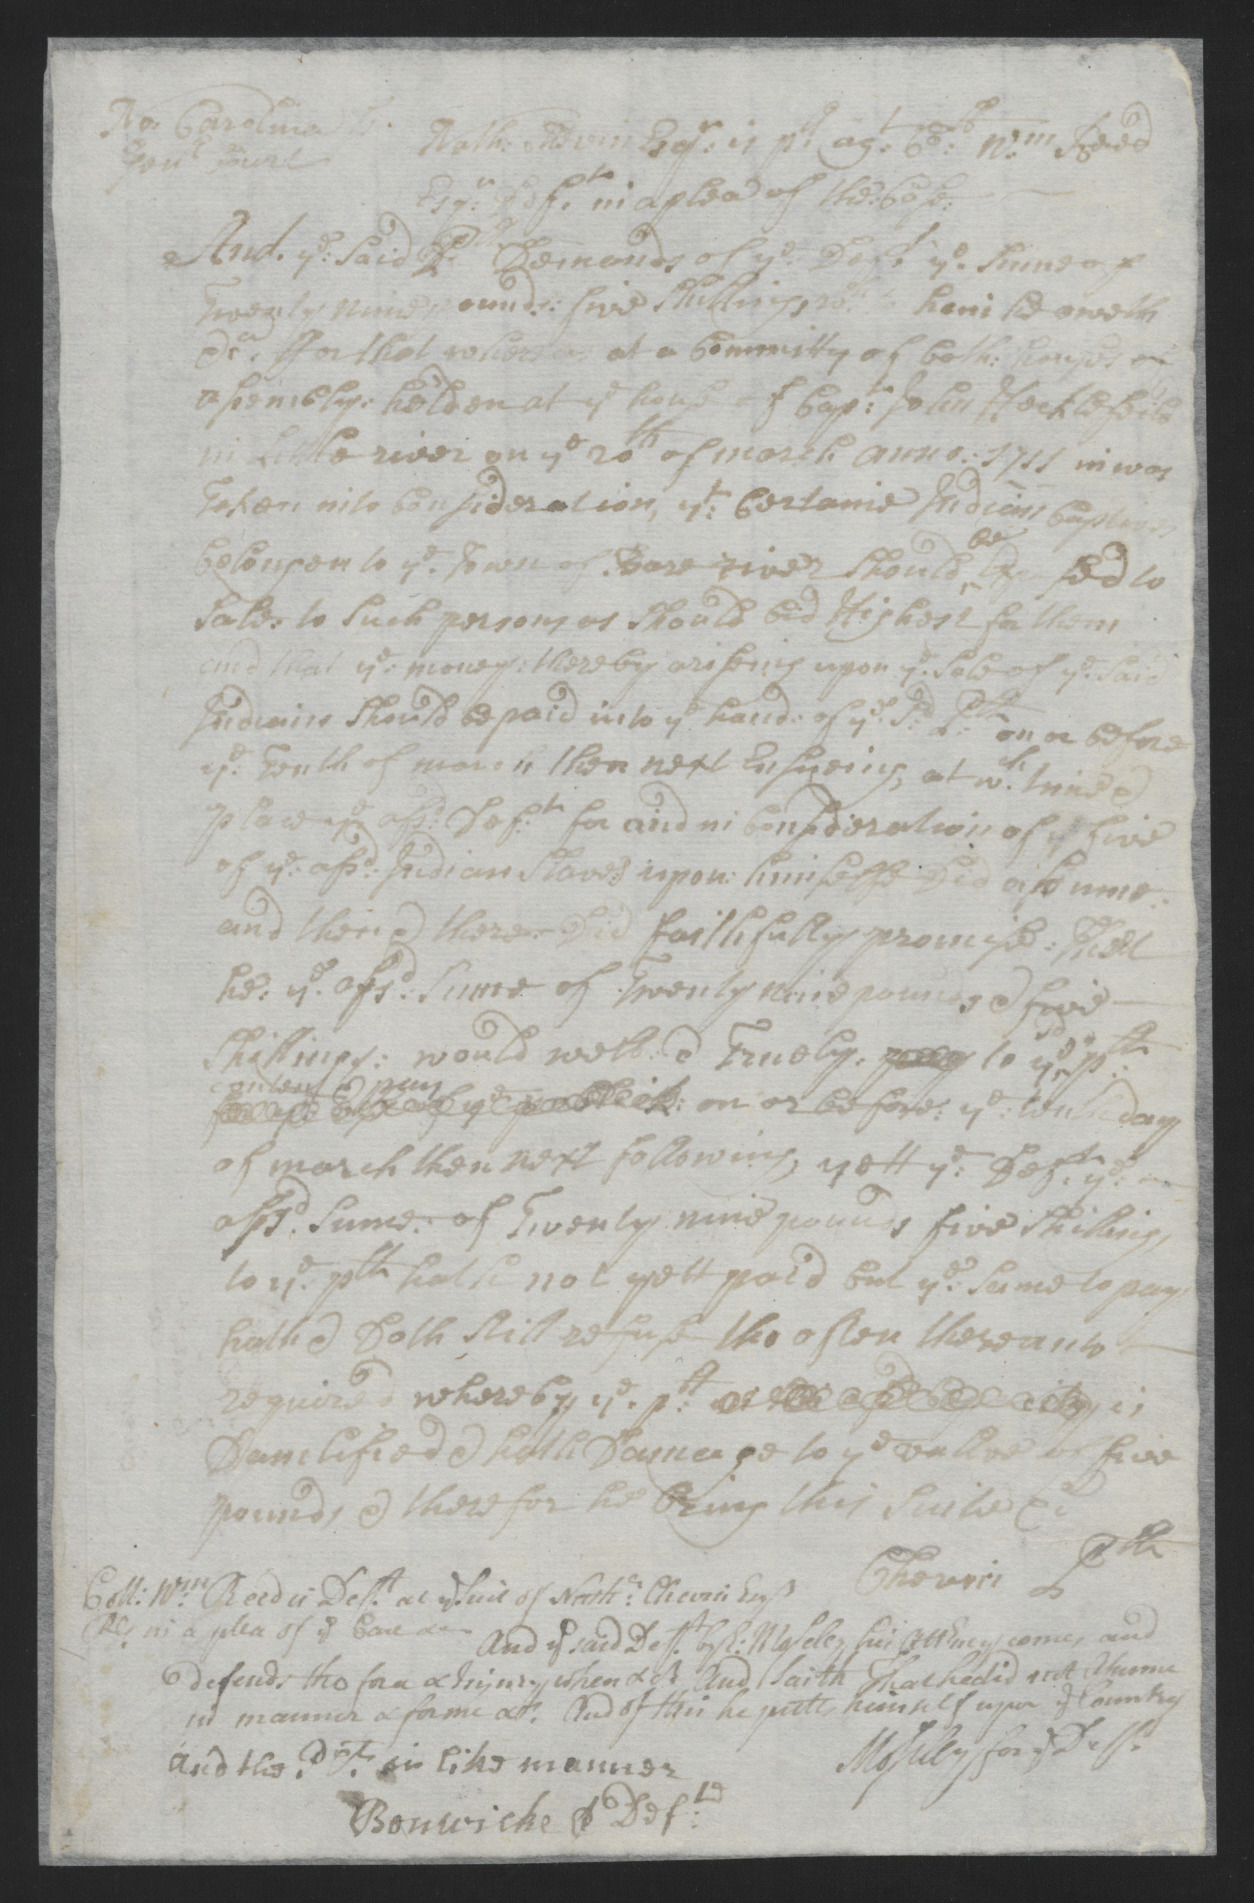 No. Carolina Ss.
Genll Court
Nath: Chevin Esqr: is plt agt: Coll: Wm: Reed
Esqr: Defts in a plea of the Case:
And. ye: Said Plt Demands of ye: Deft ye. Sume of
Twenty Nine pounds: five Shillings, wch he oweth
&ca. ffor that whereas at a Committy of both: houses of
assembly: holden at ye house of Capt: John Hecklefield
in Little river on ye 20th of march anno: 1711 in was
Taken into Consideration, yt: Certaine Indian Captives
belongen to ye. Town of Bare river Should be Exposed to
Sale: to Such persons as Should bid Highest for them
and that ye: money: thereby arisseing upon ye: Sale of ye: Said
Indians Should be paid into ye hands of ye: Sd: Plt: on or before
ye: Tenth of march then next Ensueing, at wch: time &
place ye: afsd: Deft: for and in Consideration of five
of ye: afsd: Indian Slaves upon: himselfe Did assume:
and then & there Did faithfully promise: That
he: ye: afsd: Sume of Twenty nine pounds & five
Shillings: would well: & Truely: to ye sd plt:
content & pay
on or before: ye: tenth day
of march then next following, yett ye: Deft: ye:
afsd: Sume: of Twenty nine pounds five Shilling,
to ye: plt: hath not yett paid but ye: Same to pay
hath & Doth Still refuse tho often thereunto
required whereby ye. plt: is
Damnified & hath Damage to ye value of five
pounds & therefor he bring this Suite &c
Chevin Plt
Coll: Wm: Reed is Deft. at ye. suit of Nathl: Chevin Esqr
Plt. in a plea of ye Case &c
And ye said Deft. by E: Moseley his Attorney comes and
defends the force & Injury when &c. And saith That he did not Assume
in manner & forme &c. And of this he putts himself upon ye Country
Moseley for ye Deft.
And the. plt. in like manner
Bonwicke p Deft: